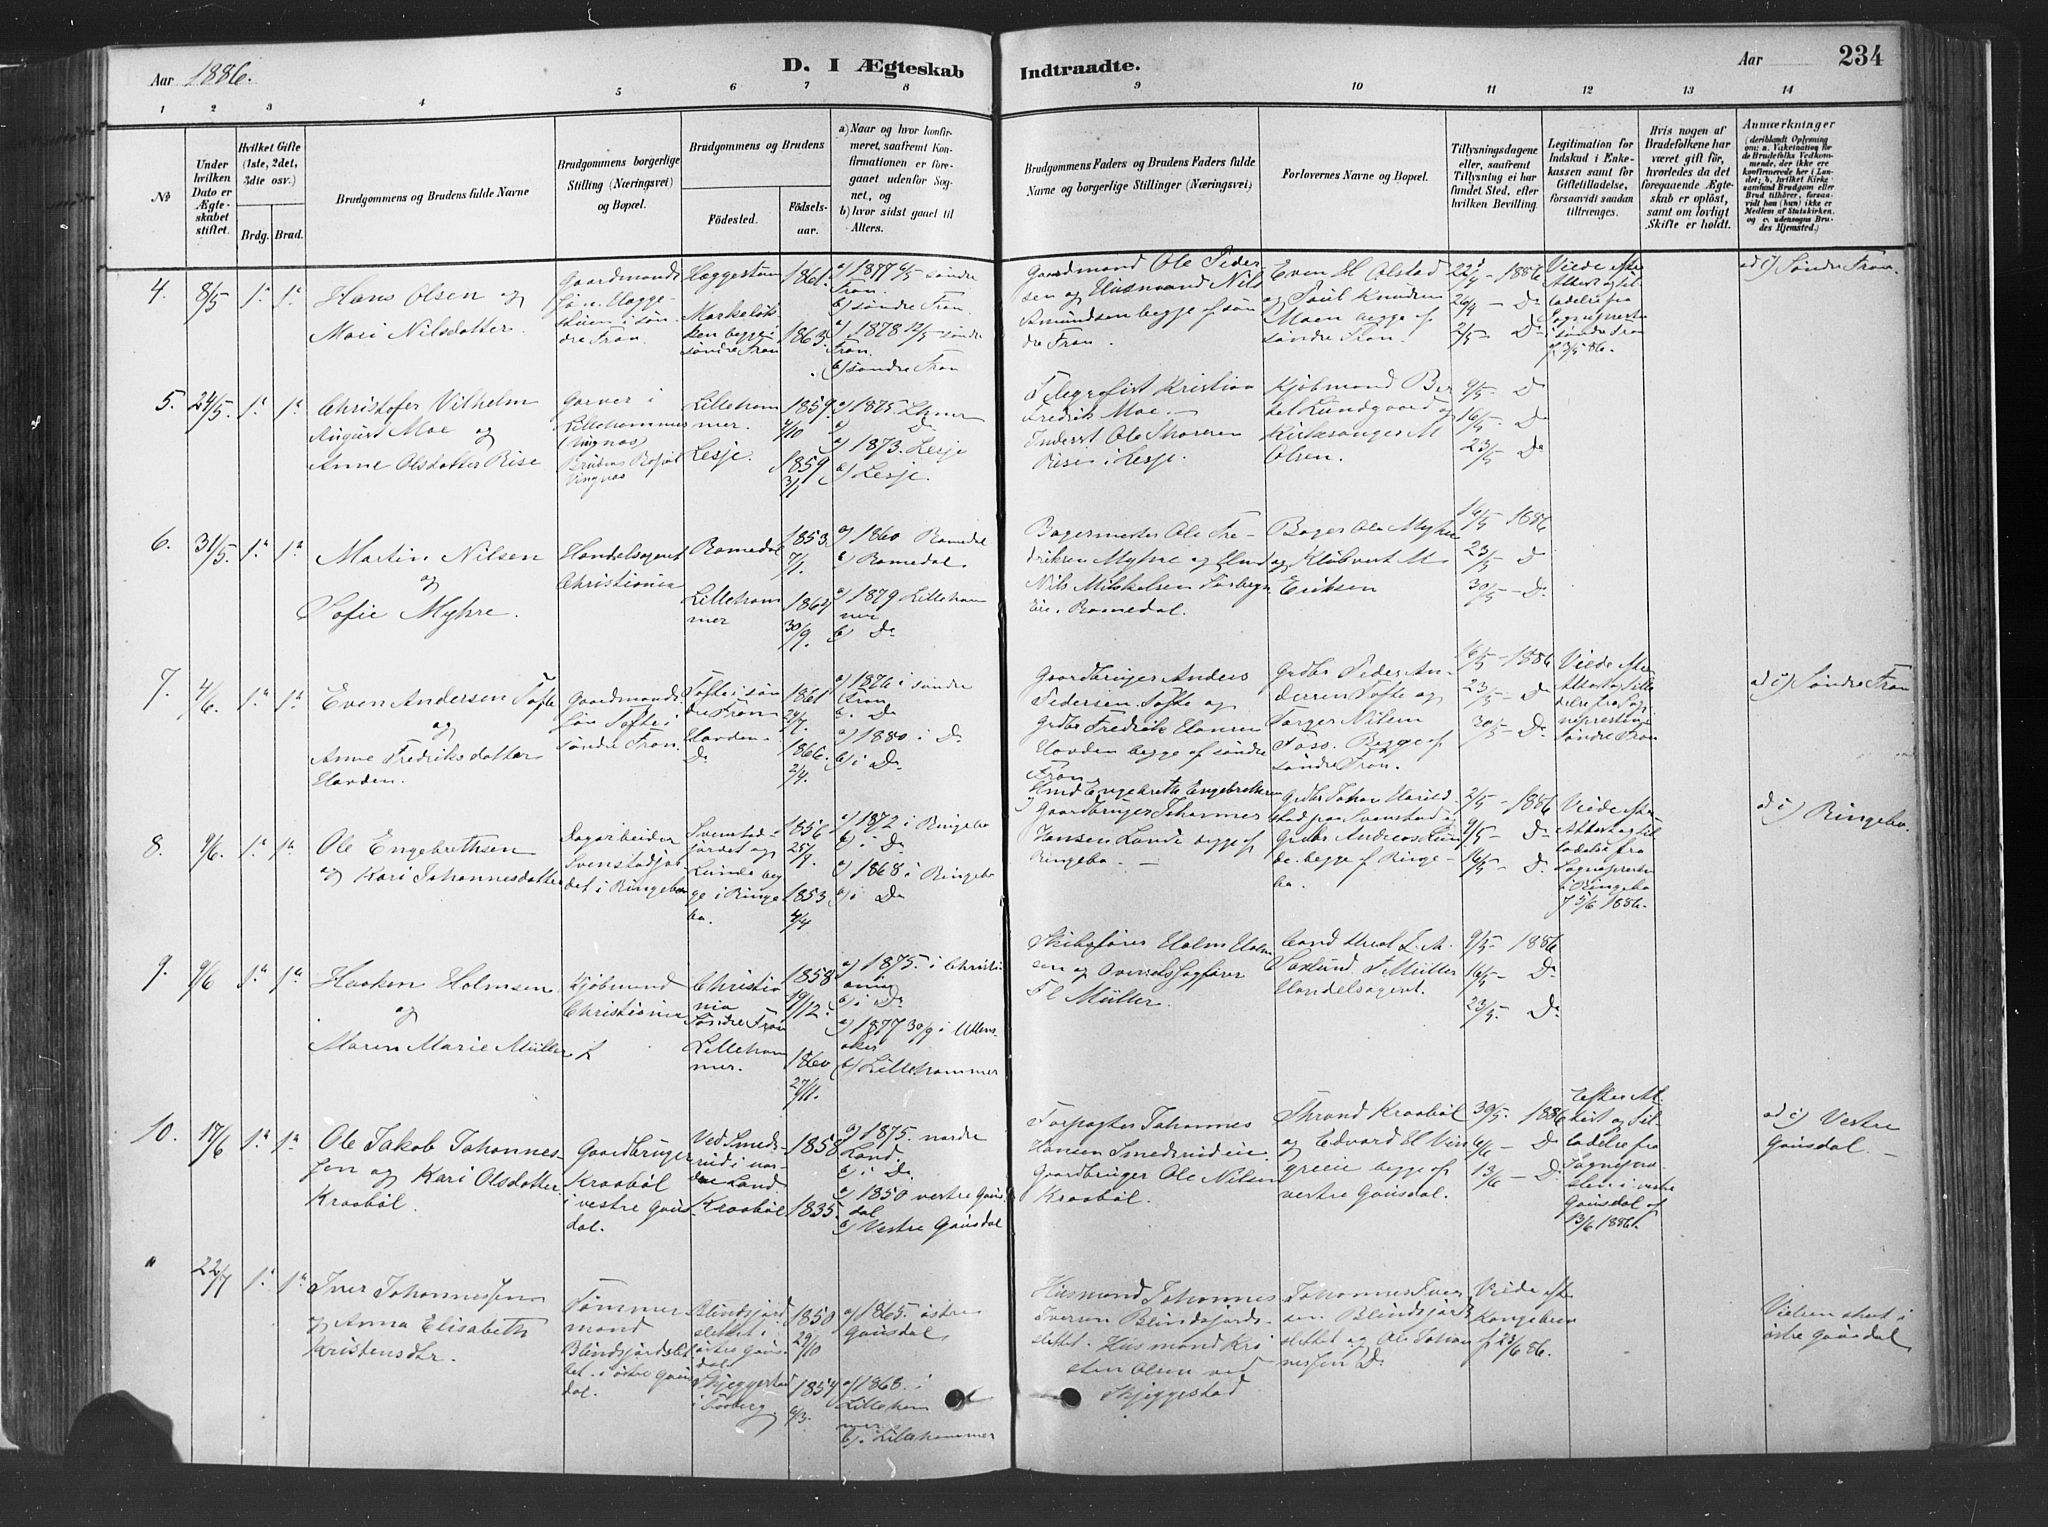 Aar 1886.
D. I Ægteskab
Indtraadte.
Aar
234
1 2 3 4 5 6 7 8 9 10 11 12 13 14
№
Under hvilken Dato er Ægteskabet stiftet.
Hvilket Gifte (1ste, 2det, 3die osv.)
Brdg. Brud.
Brudgommens og Brudens fulde Navne
Brudgommens borgerlige Stilling (Næringsvei) og Bopæl.
Brudgommens og Brudens
Fødested.
Fødselsaar.
a) Naar og hvor konfirmeret, saafremt Konfirmationen er foregaaet udenfor Sognet, og
b) hvor sidst gaaet til Alters.
Brudgommens Faders og Brudens Faders fulde Navne og borgerlige Stillinger (Næringsvei)
Forlovernes Navne og Bopæl.
Tillysningsdagene eller, saafremt Tillysning ei har fundet Sted, efter hvilken Bevilling.
Legitimation for Indskud i Enkekassen samt for Giftetilladelse, forsaavidt saadan tiltrænges.
Hvis nogen af Brudefolkene har været gift før, hvorledes da det foregaaende Ægteskab er opløst, samt om lovligt Skifte er holdt.
Anmærkninger
(deriblandt Oplysning om: a. Vakcination for de Brudefolks Vedkommende, der ikke ere konfirmerede her i Landet; b. hvilket Kirkesamfund Brudgom eller Brud tilhører, forsaavidt han (hun) ikke er Medlem af Statskirken, og c. udensogns Brudes Hjemsted.)
4. 8/5 1ª 1ª
Hans Olsen og
Mari Nilsdotter.
Gaardmands
Søn Hagge-
stuen i søn-
dre Fron.
Haggestuen
Markeløk-
ken begge i
søndre Fron
1861.
1863.
a) 1877 søndre
Fron
b) søndre Fron.
a) 1878 søndre
Fron.
b) søndre Fron
Gaardmand Ole Peder
sen og Husmand Nils
Amundsen begge af søn
dre Fron.
Even H Olstad
og Paul Knudsen
Moen begge af
søndre Fron.
22/4 - 1886
26/4 - Do
2/5 - Do
Viede efter
Attest og til
ladelse fra
Sogneprest
i søndre Fron
ad c) Søndre Fron
5. 24/5. 1ª 1ª
Christofer Vilhelm
August Moe og
Anne Olsdotter Rise
Garver i
Lillehammer
(Vingnæs)
Lilleham
mer.
Lesje.
1859.
1859
3/1
a) 1875. Lhmer
Do
a) 1873. Lesje
b) Lesje.
Telegrafist Kristian
Fredrik Moe. —
Inderst Ole Thoresen
Rise i Lesje.
Kjøbmand Ber
tel Lundgaard og
Kirkesanger M
Olsen.
9/5 - Do
16/5 - Do
23/5 Do
6. 31/5. 1ª 1ª
Martin Nilsen
og
Sofie Myhre.
Handelsagent
Christiania
Romedal
Lilleham
mer
1853.
7/1.
30/9.
a) 1860 Romedal
b) Romedal.
a) 1879 Lilleham
mer
b) Do
Bagermester Ole Fre-
driksen Myhre og
Nils Mikkelsen
Eie. Romedal.
Bager Ole Myhre
og M
Eriksen
16/5 1886
23/5 Do
30/5 - Do
7. 4/6. 1ª 1ª
Even Andersen Tofte
og
Anne Fredriksdotter
Hovden.
Gaardmands
Søn Tofte i
søndre Fron.
Tofte i søn
dre Fron
Hovden.
Do
1861
24/7.
1866.
2/4.
a) 1876 i søndre
Fron
b. Do
a) 1880 i Do
b) i Do
Gaardbruger Anders
Pedersen Tofte og
Grdbr Fredrik Hansen
Hovden begge af søndre
Fron
Grdbr Peder An-
dersen Tofte og
Torger Nilsen
Foss. Begge af
søndre Fron.
16/5 - 1886
23/5 - Do
30/5 - Do
Viede efter
Attest og Tilla
delse fra Sog
nepresten i
søndre Fron
ad c) Søndre Fron
8. 9/6. 1ª 1ª
Ole Engebrethsen
og Kari Johannesdotter
Dagarbeider
Svenstadjor
det i Ringebo
Svenstad-
jordet og
Lunde beg
ge i Ringe
bo.
1856
25/9.
1853.
4/4
a) 1872 i Ringebo
b) i Do
a) 1868 i Ringebo
b) i Do
Hmd Engebreth Engebrethsen
Gaardbruger Johannes
Hansen Lunde begge af
Ringebo. —
Grdbr Johan Harild-
stad paa Svenstad og
Grdbr Andreas Lun
de. begge af Ringe-
bo.
2/5 - 1886
9/5 - Do
16/5 - Do
Viede efter
Attest og til
ladelse fra
Sognepresten
i Ringebo
f 5/6 1886.
ad c) Ringebo.
9. 9/6 1ª 1ª
Haaken Holmsen
og
Maren Marie Müller
Kjøbmand
Christiania
Christia
nia
Søndre Fron
Lilleham
mer.
1858
19/12.
1860
27/11.
a) 1875. i Christi
ania
b) i Do
a) 1877 30/9 i Ullens-
aker
b) Lillehammer
Skibsfører Holm Holm
sen og Overretssagfører
Müller.
Cand theol L. A.
Müller
Handelsagent.
9/5 - 1886
16/5 - Do
23/5. Do
10. 17/6 1ª 1ª
Ole Jakob Johannes-
sen og Kari Olsdotter
Kraabøl.
Gaardbruger
Kraabøl
i vestre Gaus
dal.
Ved Smeds
rud i nor-
dre Land.
Kraabøl
1858
1835.
a) 1875. nordre
Land.
b) i Do.
a) 1850 vestre Gaus
dal
b) Vestre Gausdal
Forpagter Johannes
Hansen Smedsrudeie
Gaardbruger Ole Nilsen
Kraabøl.
Thrond Kraabøl
og Edvard H Vin
greeie begge af
vestre Gausdal.
30/5. 1886
6/6 - Do
13/6 - Do
Efter At
test og Til
ladelse fra
Sognepre
sten i vestre
Gausdal af
13/6 1886.
ad c) Vestre
Gausdal. —
" 22/7 1ª 1ª
Iver Johannessen
og Anna Elisabeth
Kristensdtr.
Tømmer
mand
Blindsjordslet
tet. i østre Gaus
dal.
Blindsjord
slettet i
østre Gaus
dal
Skjeggestad
i Faaberg
1850
29/10
1854
6/3.
a) 1865. østre
Gausdal
a) 1868. i
Lilleham
mer
b) i Lillehammer
Husmand Johannes
Iversen Blindsjords-
slettet. Husmand Kri
sten Olsen ved
Skjeggestad
Johannes Iver
sen Blindsjords
slettet og Ole Johan
nessen Do.
Viede efter
Kongebrev
f 23/6 86.
Vielsen skeet i
østre Gausdal